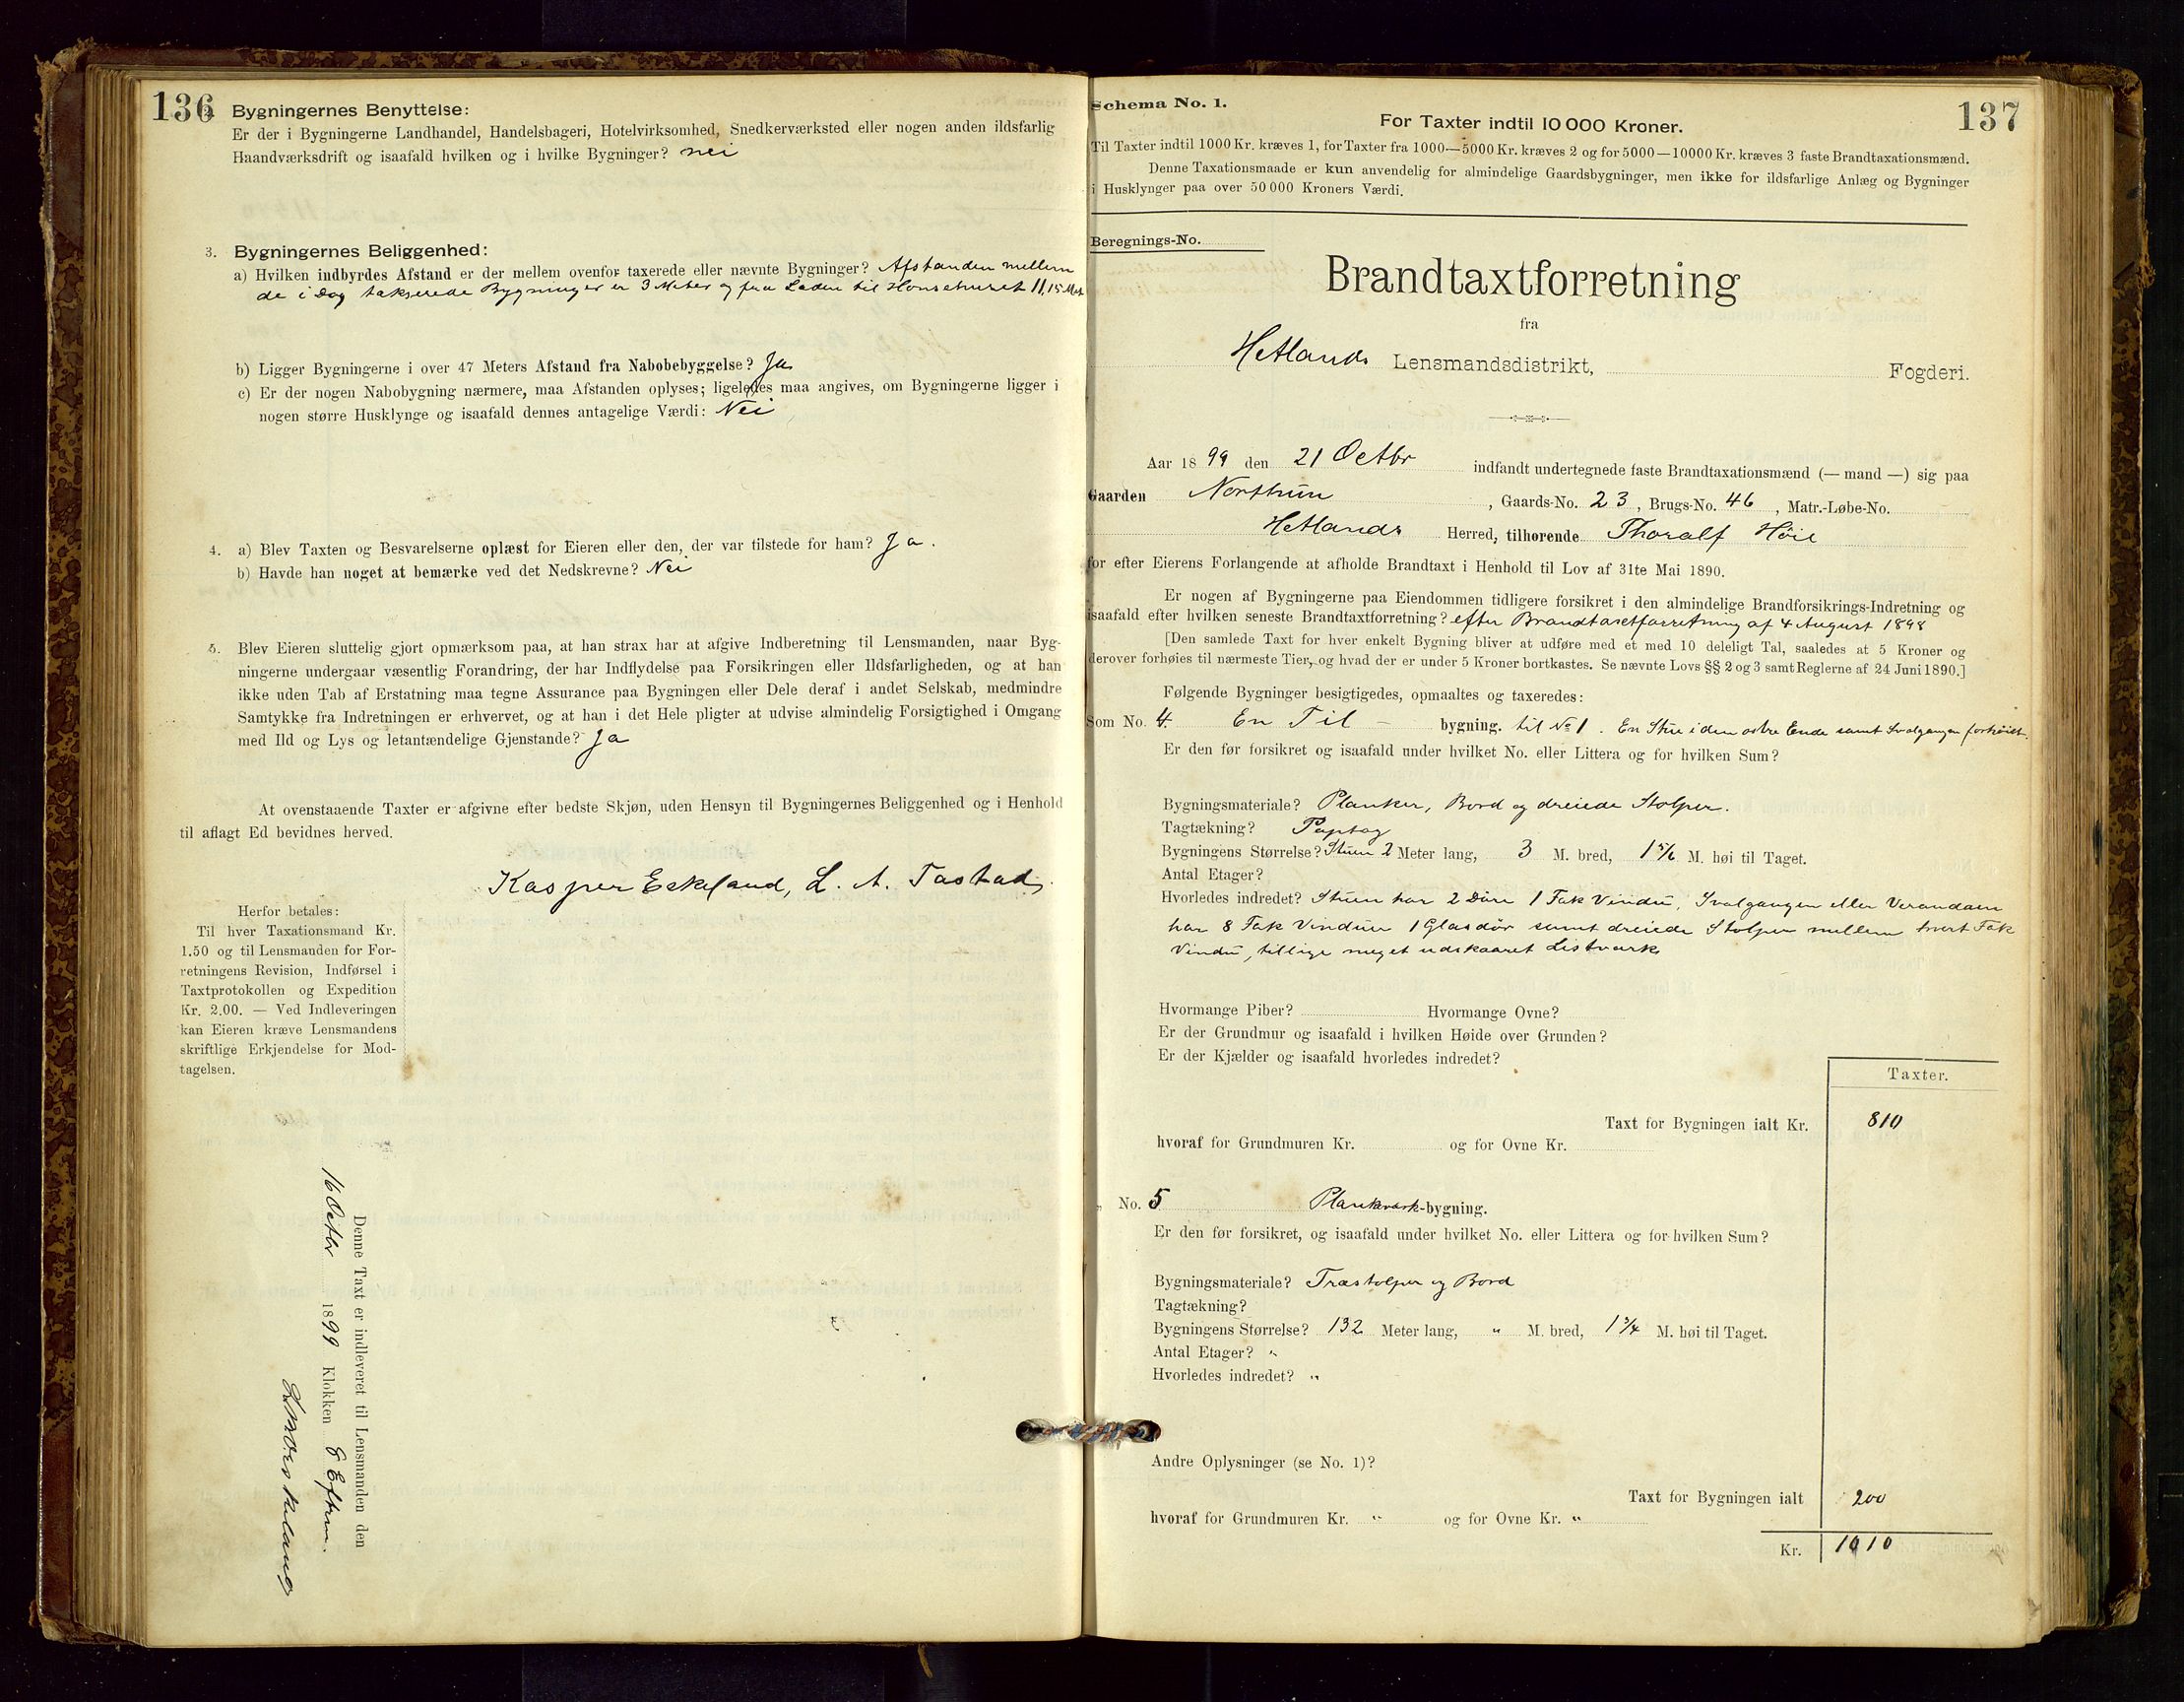 136
2. Bygningernes Benyttelse:
Er der i Bygningerne Landhandel, Handelsbageri, Hotelvirksomhed, Snedkerværksted eller nogen anden ildsfarlig
Haandværksdrift og isaafald hvilken og i hvilke Bygninger? nei
3. Bygningernes Beliggenhed:
a) Hvilken indbyrdes Afstand er der mellem ovenfor taxerede eller nævnte Bygninger? Afstanden mellem
de i Dag takserede Bygninger er 3 Meter og fra Laden til Hønsehuset 11,15 Met
b) Ligger Bygningerne i over 47 Meters Afstand fra Nabobebyggelse? Ja
c) Er der nogen Nabobygning nærmere, maa Afstanden oplyses; ligeledes maa angives, om Bygningerne ligger i
nogen større Husklynge og isaafald dennes antagelige Værdi: Nei
4. a) Blev Taxten og Besvarelserne oplæst for Eieren eller den, der var tilstede for ham? Ja.
b) Havde han noget at bemærke ved det Nedskrevne? Nei
5. Blev Eieren sluttelig gjort opmærksom paa, at han strax har at afgive Indberetning til Lensmanden, naar Byg-
ningerne undergaar væsentlig Forandring, der har Indflydelse paa Forsikringen eller Ildsfarligheden, og at han
ikke uden Tab af Erstatning maa tegne Assurance paa Bygningen eller Dele deraf i andet Selskab, medmindre
Samtykke fra Indretningen er erhvervet, og at han i det Hele pligter at udvise almindelig Forsigtighed i Omgang
med Ild og Lys og letantændelige Gjenstande? Ja
At ovenstaaende Taxter er afgivne efter bedste Skjøn, uden Hensyn til Bygningernes Beliggenhed og i Henhold
til aflagt Ed bevidnes herved.
Kasper Eskeland, L. A. Tastad,
Herfor betales:
Til hver Taxationsmand Kr.
1.50 og til Lensmanden for For-
retningens Revision, Indførsel i
Taxtprotokollen og Expedition
Kr. 2.00. — Ved Indleveringen
kan Eieren kræve Lensmandens
skriftlige Erkjendelse for Mod-
tagelsen.
Denne Taxt er indleveret til Lensmanden den
16 Octbr 1899 Klokken 8 Eftrm.
Schema No. 1.
137
For Taxter indtil 10 000 Kroner.
Til Taxter indtil 1000 Kr. kræves 1, for Taxter fra 1000—5000 Kr. kræves 2 og for 5000—10000 Kr. kræves 3 faste Brandtaxationsmænd.
Denne Taxationsmaade er kun anvendelig for almindelige Gaardsbygninger, men ikke for ildsfarlige Anlæg og Bygninger
i Husklynger paa over 50 000 Kroners Værdi.
Beregnings-No.
Brandtaxtforretning
fra
Hetlands Lensmandsdistrikt, Fogderi.
Aar 1899 den 21 Octbr indfandt undertegnede faste Brandtaxationsmænd (— mand —) sig paa
Gaarden Northun, Gaards-No. 23, Brugs-No. 46, Matr.-Løbe-No.
Hetlands Herred, tilhørende Thoralf Høie
for efter Eierens Forlangende at afholde Brandtaxt i Henhold til Lov af 31te Mai 1890.
Er nogen af Bygningerne paa Eiendommen tidligere forsikret i den almindelige Brandforsikrings-Indretning og
isaafald efter hvilken seneste Brandtaxtforretning? efter Brandtaxtforretning af 4 August 1898
[Den samlede Taxt for hver enkelt Bygning bliver at udføre med et med 10 deleligt Tal, saaledes at 5 Kroner og
derover forhøies til nærmeste Tier, og hvad der er under 5 Kroner bortkastes. Se nævnte Lovs §§ 2 og 3 samt Reglerne af 24 Juni 1890.]
Følgende Bygninger besigtigedes, opmaaltes og taxeredes:
Som No. 4. En Til - bygning. til No 1. En Stue i den østre Ende samt Svalgangen forhøiet.
Er den før forsikret og isaafald under hvilket No. eller Littera og for hvilken Sum?
Bygningsmateriale? Planker, Bord og dreiede Stolper.
Tagtækning? Paptag
Bygningens Størrelse? Stuen 2 Meter lang, 3 M. bred, 1 5/6 M. høi til Taget.
Antal Etager?
Hvorledes indredet? Stuen har 2 Döre 1 Fak Vindu, Svalgangen eller Verandaen
har 8 Fak Vinduer 1 Glasdör samt dreiede Stolper mellem hvert Fak
Vindu, tillige meget udskaaret Listverk
Hvormange Piber? Hvormange Ovne?
Er der Grundmur og isaafald i hvilken Høide over Grunden?
Er der Kjælder og isaafald hvorledes indredet?
Taxter.
Taxt for Bygningen ialt Kr. 810
hvoraf for Grundmuren Kr. og for Ovne Kr.
„ No. 5 Plankverk-bygning.
Er den før forsikret, og isaafald under hvilket No. eller Littera og for hvilken Sum?
Bygningsmateriale? Træstolper og Bord
Tagtækning?
Bygningens Størrelse? 132 Meter lang, " M. bred, 1 3/4 M. høi til Taget.
Antal Etager? "
Hvorledes indredet? "
Andre Oplysninger (se No. 1)?
Taxt for Bygningen ialt 200
hvoraf for Grundmuren Kr. " og for Ovne Kr. "
Kr. 1010